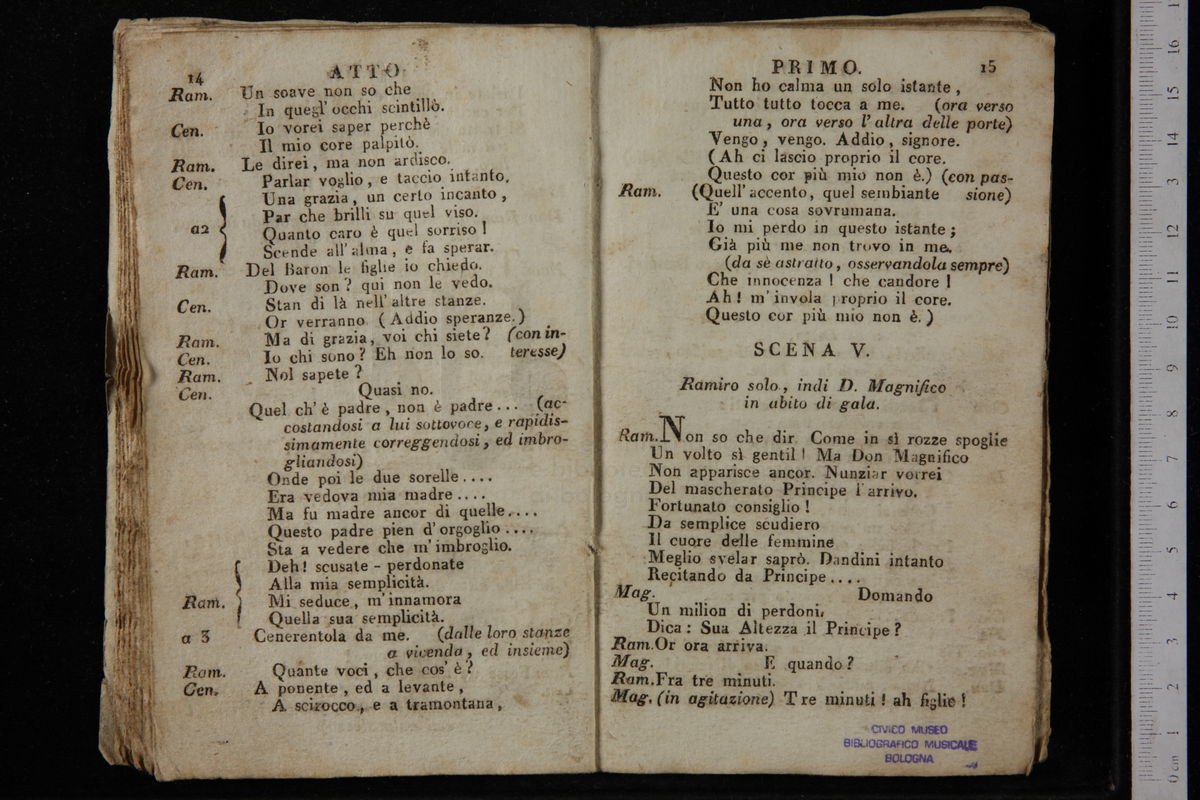 14 ATTO
Ram. Un soave non so che
In quegl' occhi scintillò.
Cen. Io vorei saper perchè
Il mio core palpitò.
Ram. Le direi, ma non ardisco.
Cen. Parlar voglio, e taccio intanto.
Una grazia, un certo incanto,
Par che brilli su quel viso.
a2 Quanto caro è quel sorriso!
Scende all' alma, e fa sperar.
Ram. Del Baron le figlie io chiedo.
Dove son? qui non le vedo.
Cen. Stan di là nell' altre stanze.
Or verranno (Addio speranze.)
Ram. Ma di grazia, voi chi siete? (con in-
Cen. Io chi sono? Eh non lo so. teresse)
Ram. Nol sapete?
Cen. Quasi no.
Quel ch' è padre, non è padre... (ac-
costandosi a lui sottovoce, e rapidis-
simamente correggendosi, ed imbro-
gliandosi)
Onde poi le due sorelle....
Era vedova mia madre....
Ma fu madre ancor di quelle....
Questo padre pien d' orgoglio....
Sta a vedere che m' imbroglio.
Deh! scusate - perdonate
Alla mia semplicità.
Ram. Mi seduce, m' innamora
Quella sua semplicità.
a 3 Cenerentola da me. (dalle loro stanze
a vicenda, ed insieme)
Ram. Quante voci, che cos' è?
Cen. A ponente, ed a levante,
A scirocco, e a tramontana,
PRIMO. 15
Non ho calma un solo istante,
Tutto tutto tocca a me. (ora verso
una, ora verso l' altra delle porte)
Vengo, vengo. Addio, signore.
(Ah ci lascio proprio il core.
Questo cor più mio non è.) (con pas-
Ram. (Quell' accento, quel sembiante sione)
E' una cosa sovrumana.
Io mi perdo in questo istante;
Già più me non trovo in me.
(da sè astratto, osservandola sempre)
Che innocenza! che candore!
Ah! m' invola proprio il core.
Questo cor più mio non è.)
SCENA V.
Ramiro solo, indi D. Magnifico
in abito di gala.
Ram. Non so che dir. Come in sì rozze spoglie
Un volto sì gentil! Ma Don Magnifico
Non apparisce ancor. Nunziar vorrei
Del mascherato Principe l' arrivo.
Fortunato consiglio!
Da semplice scudiero
Il cuore delle femmine
Meglio svelar saprò. Dandini intanto
Recitando da Principe....
Mag. Domando
Un milion di perdoni.
Dica: Sua Altezza il Principe?
Ram. Or ora arriva.
Mag. E quando?
Ram. Fra tre minuti.
Mag. (in agitazione) Tre minuti! ah figlie!
CIVICO MUSEO
BIBLIOGRAFICO MUSICALE
BOLOGNA
0 cm 1 2 3 4 5 6 7 8 9 10 11 12 13 14 15 16